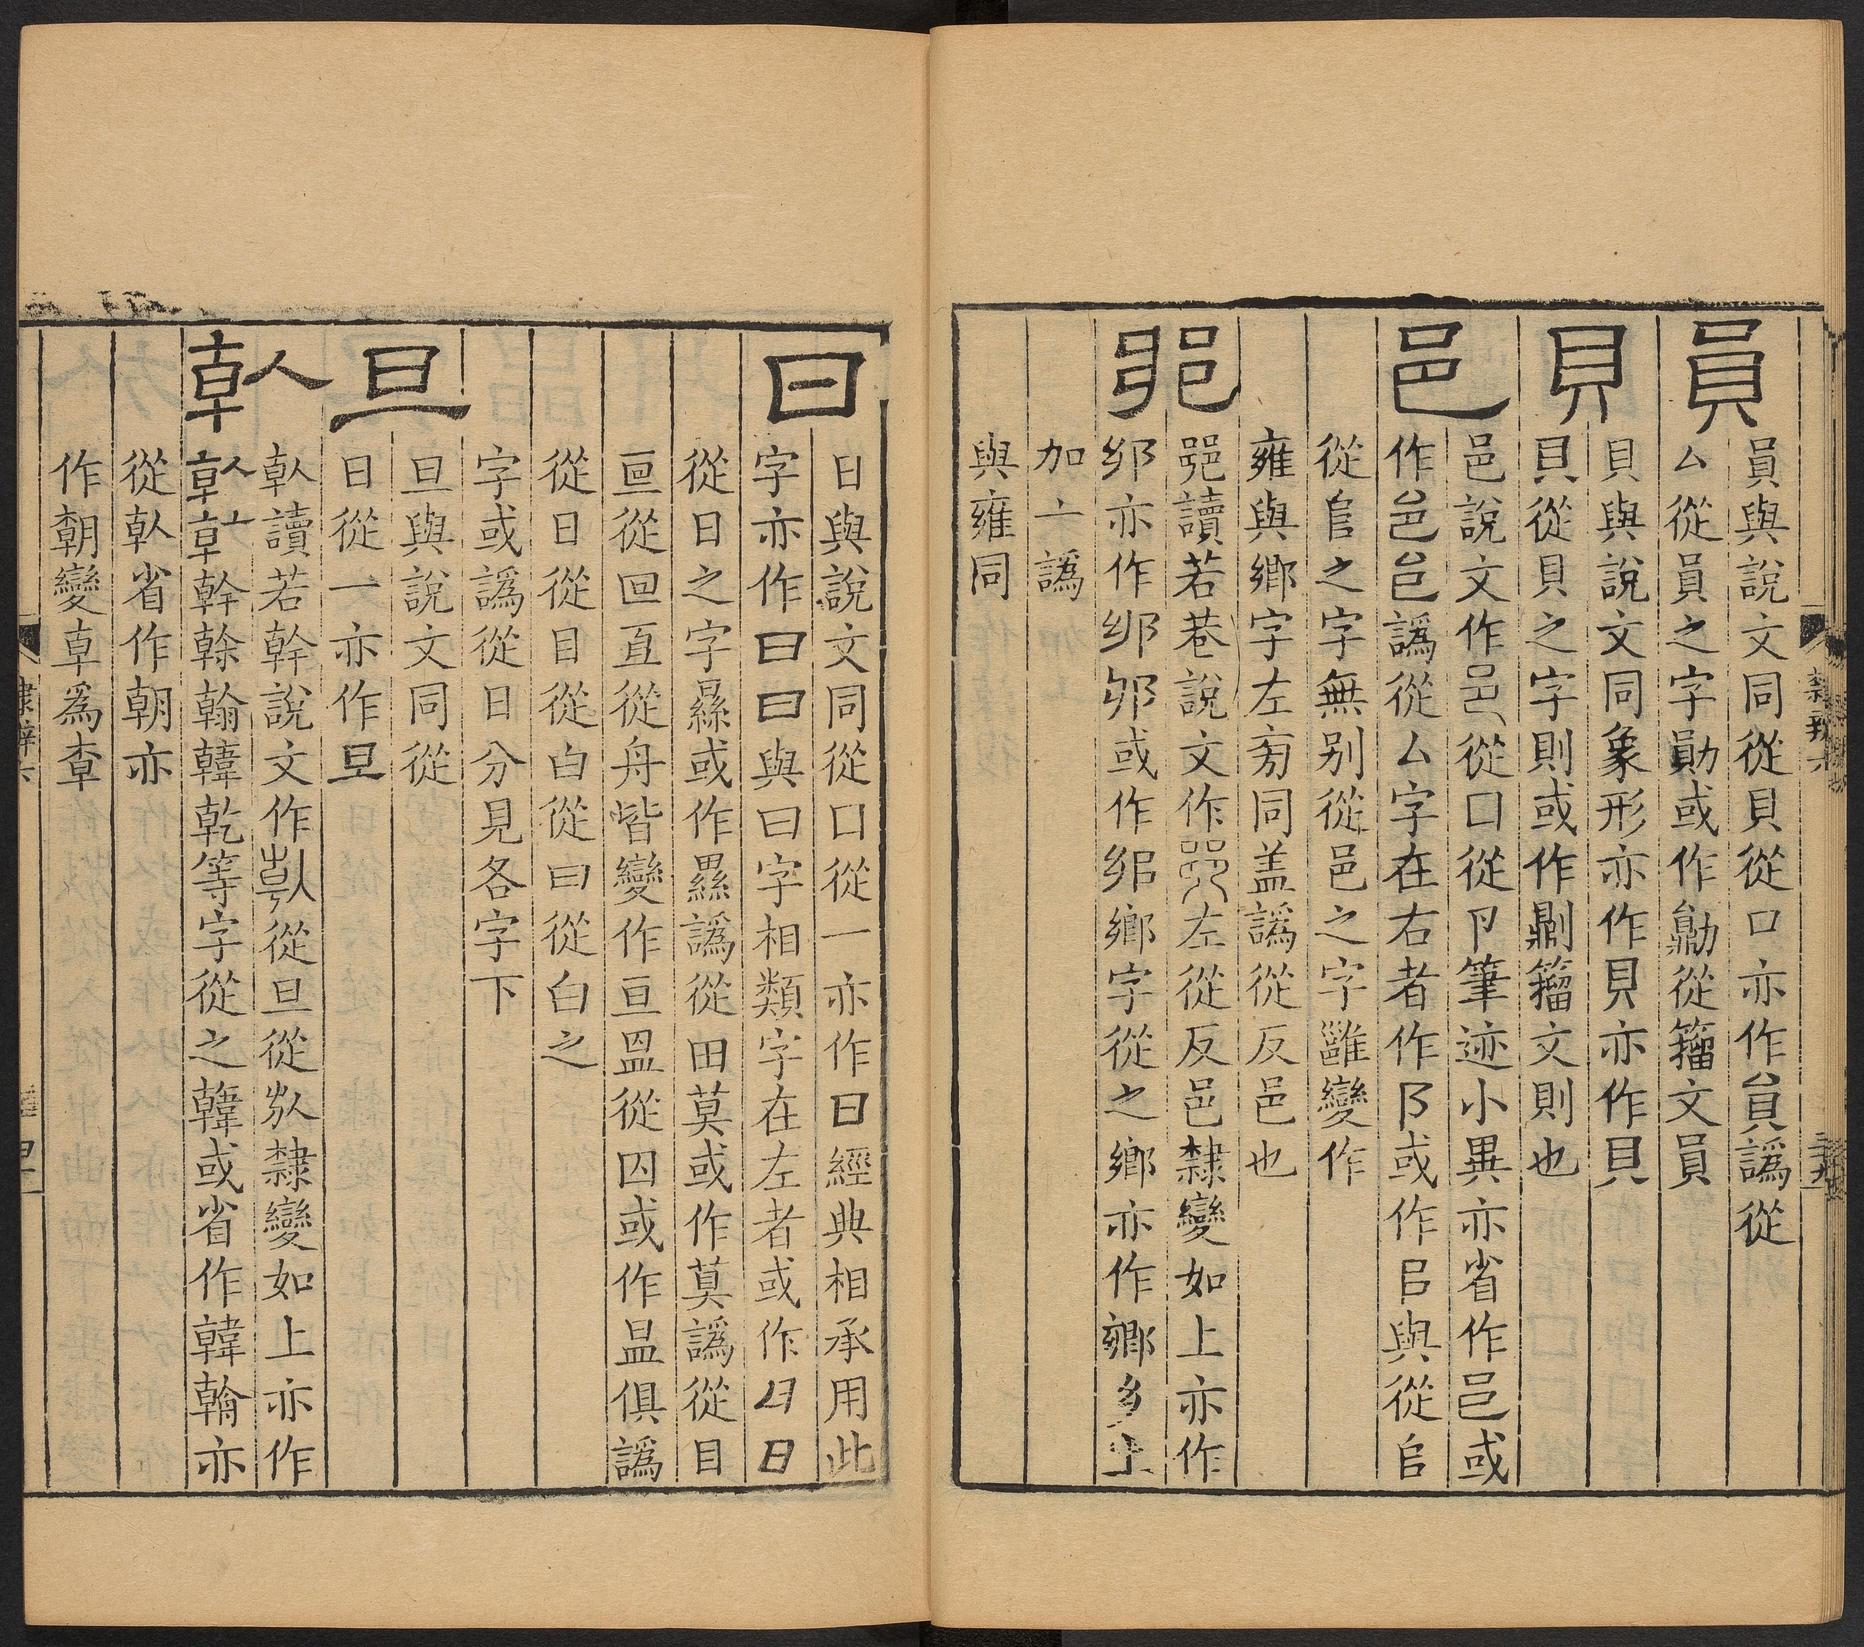 員
員與說文同從貝從口亦作貟譌從
厶從員之字勛或作勳從籀文員
貝
貝與說文同象形亦作貝亦作貝
貝從貝之字則或作鼎刂籀文則也
邑
邑說文作邑從口從卪筆迹小異亦省作邑或
作邑邑譌從厶字在右者作阝或作㠯與從𠂤
從𠂤之字無別從邑之字雝變作
雍與鄉字左旁同盖譌從反邑也
𨛜
𨛜讀若巷說文作𨛜左從反邑隸變如上亦作
亦作或作鄉字從之鄉亦作鄉多
加亠譌
與雍同
日
日與說文同從口從一亦作日經典相承用此
字亦作曰曰與曰字相類字在左者或作日日
從日之字㬎或作㬎譌從田莫或作莫譌從目
亘從回亙從舟皆變作亘昷從囚或作昷俱譌
從日從目從白從曰從白之
字或譌從日分見各字下
旦
旦與說文同從
日從一亦作旦
倝
倝讀若幹說文作倝從旦從㫃隸變如上亦作
幹榦翰韓乾等字從之韓或省作韓翰亦
從倝省作朝亦
作朝變𠦝為𣆪
隸辨六